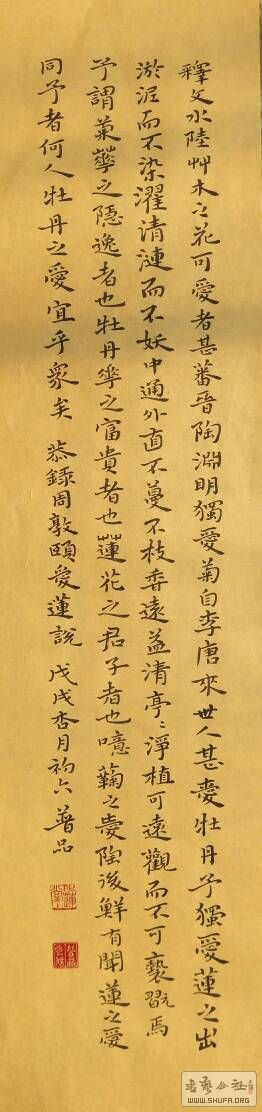 釋文水陸艸木之花可愛者甚蕃晉陶淵明獨愛菊自李唐來世人甚愛牡丹予獨愛蓮之出
淤泥而不染濯清漣而不妖中通外直不蔓不枝香遠益清亭〻淨植可遠觀而不可褻翫焉
予謂菊華之隱逸者也牡丹華之富貴者也蓮花之君子者也噫菊之愛陶後鮮有聞蓮之愛
同予者何人牡丹之愛宜乎衆矣 恭錄周敦頤愛蓮説 戊戌杏月初六 普品
WWW.SHUFA.ORG